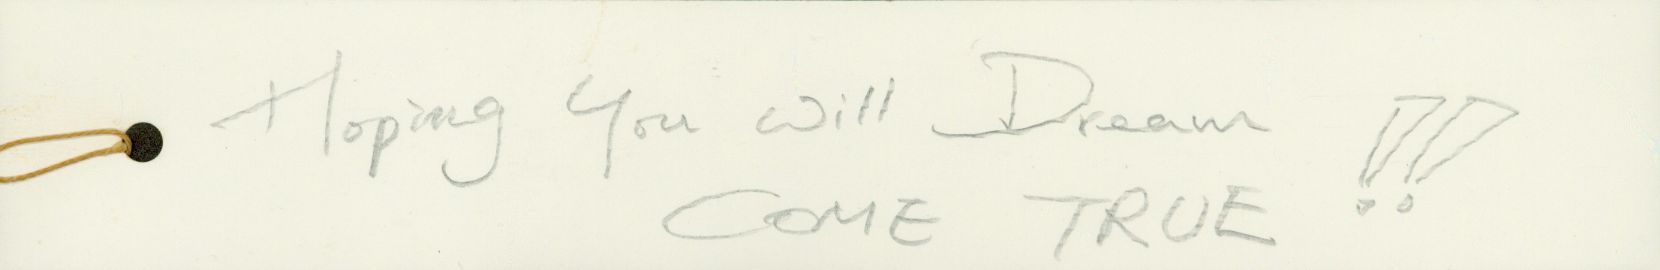 Hoping you will Dream !!!
COME TRUE